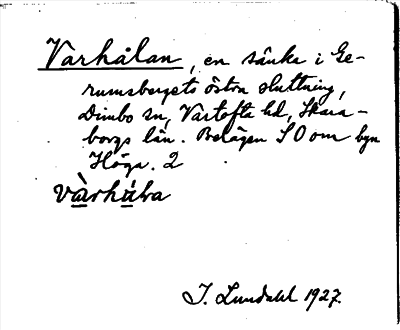 Varhålan, en sänka i Ge-
rumsbergets östra sluttning,
Dimbo sn, Vartofta hd, Skara-
borgs län. Belägen SO om byn
Höga. 2
I. Lundahl 1927.